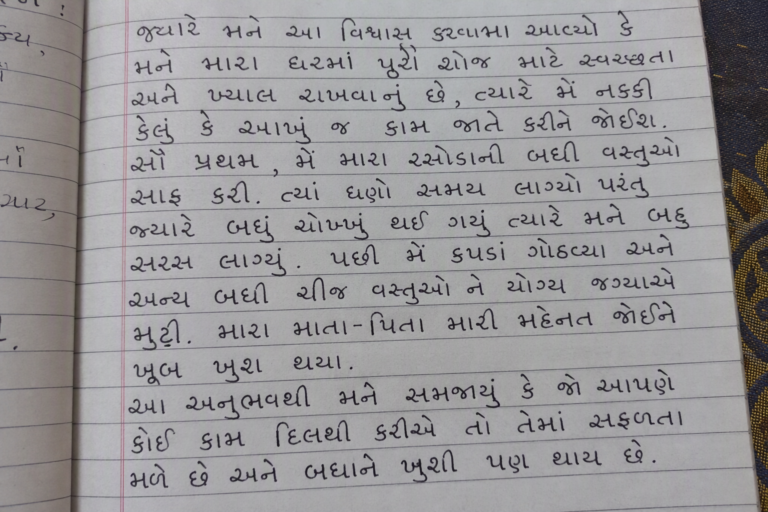 જ્યારે મને આ વિશ્વાસ કરવામા આવ્યો કે
મને મારા ઘરમાં પુરી રોજ માટે સ્વચ્છતા
અને ખ્યાલ રાખવાનું છે, ત્યારે મેં નક્કી
કેલું કે આખું જ કામ જાતે કરીને જોઈશ.
સૌ પ્રથમ, મેં મારા રસોડાની બધી વસ્તુઓ
સાફ કરી. ત્યાં ઘણો સમય લાગ્યો પરંતુ
જ્યારે બધું ચોખ્ખું થઈ ગયું ત્યારે મને બહુ
સરસ લાગ્યું. પછી મેં કપડાં ગોઠવ્યા અને
અન્ય બધી ચીજ વસ્તુઓ ને યોગ્ય જગ્યાએ
મુટી. મારા માતા-પિતા મારી મહેનત જોઈને
ખૂબ ખુશ થયા.
આ અનુભવથી મને સમજાયું કે જો આપણે
કોઈ કામ દિલથી કરીએ તો તેમાં સફળતા
મળે છે અને બધાને ખુશી પણ થાય છે.